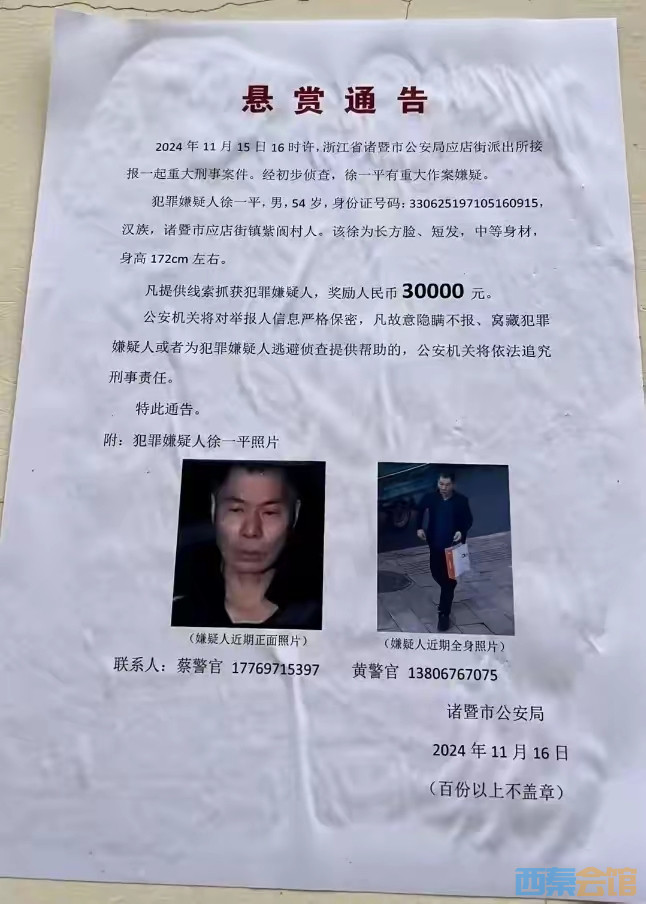 悬赏通告
2024年11月15日16时许，浙江省诸暨市公安局应店街派出所接
报一起重大刑事案件。经初步侦查，徐一平有重大作案嫌疑。
犯罪嫌疑人徐一平，男，54岁，身份证号码：330625197105160915，
汉族，诸暨市应店街镇紫阆村人。该徐为长方脸、短发，中等身材，
身高172cm左右。
凡提供线索抓获犯罪嫌疑人，奖励人民币30000元。
公安机关将对举报人信息严格保密，凡故意隐瞒不报、窝藏犯罪
嫌疑人或者为犯罪嫌疑人逃避侦查提供帮助的，公安机关将依法追究
刑事责任。
特此通告。
附：犯罪嫌疑人徐一平照片
（嫌疑人近期正面照片）
（嫌疑人近期全身照片）
联系人：蔡警官 17769715397 黄警官 13806767075
诸暨市公安局
2024年11月16日
（百份以上不盖章）
西秦会馆